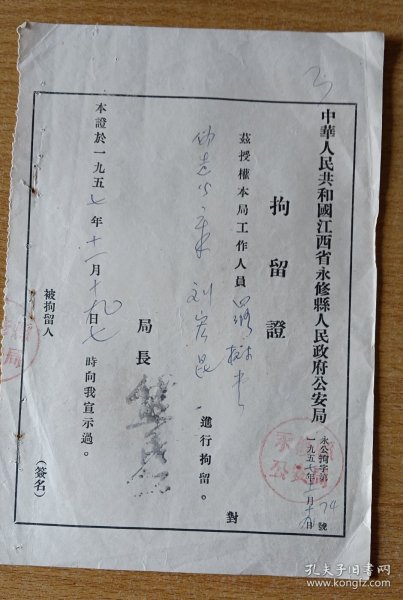 中華人民共和國江西省永修縣人民政府公安局
永公拘字第74號
一九五七年十一月十九日
拘留證
茲授權本局工作人員 對
刘宏昆 進行拘留。
局長
本證於一九五七年十一月十九日七時向我宣示過。
被拘留人 (簽名)
孔夫子旧书网
www.kongfz.com